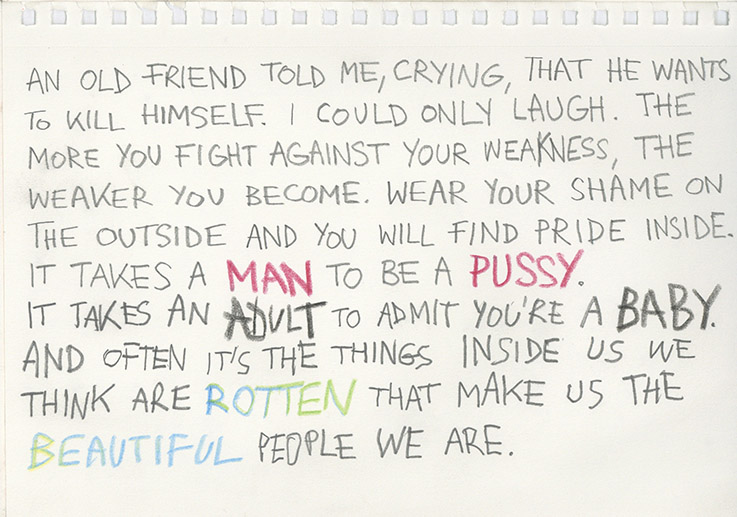 AN OLD FRIEND TOLD ME, CRYING, THAT HE WANTS
TO KILL HIMSELF. I COULD ONLY LAUGH. THE
MORE YOU FIGHT AGAINST YOUR WEAKNESS, THE
WEAKER YOU BECOME. WEAR YOUR SHAME ON
THE OUTSIDE AND YOU WILL FIND PRIDE INSIDE.
IT TAKES A MAN TO BE A PUSSY.
IT TAKES AN ADULT TO ADMIT YOU'RE A BABY.
AND OFTEN IT'S THE THINGS INSIDE US WE
THINK ARE ROTTEN THAT MAKE US THE
BEAUTIFUL PEOPLE WE ARE.